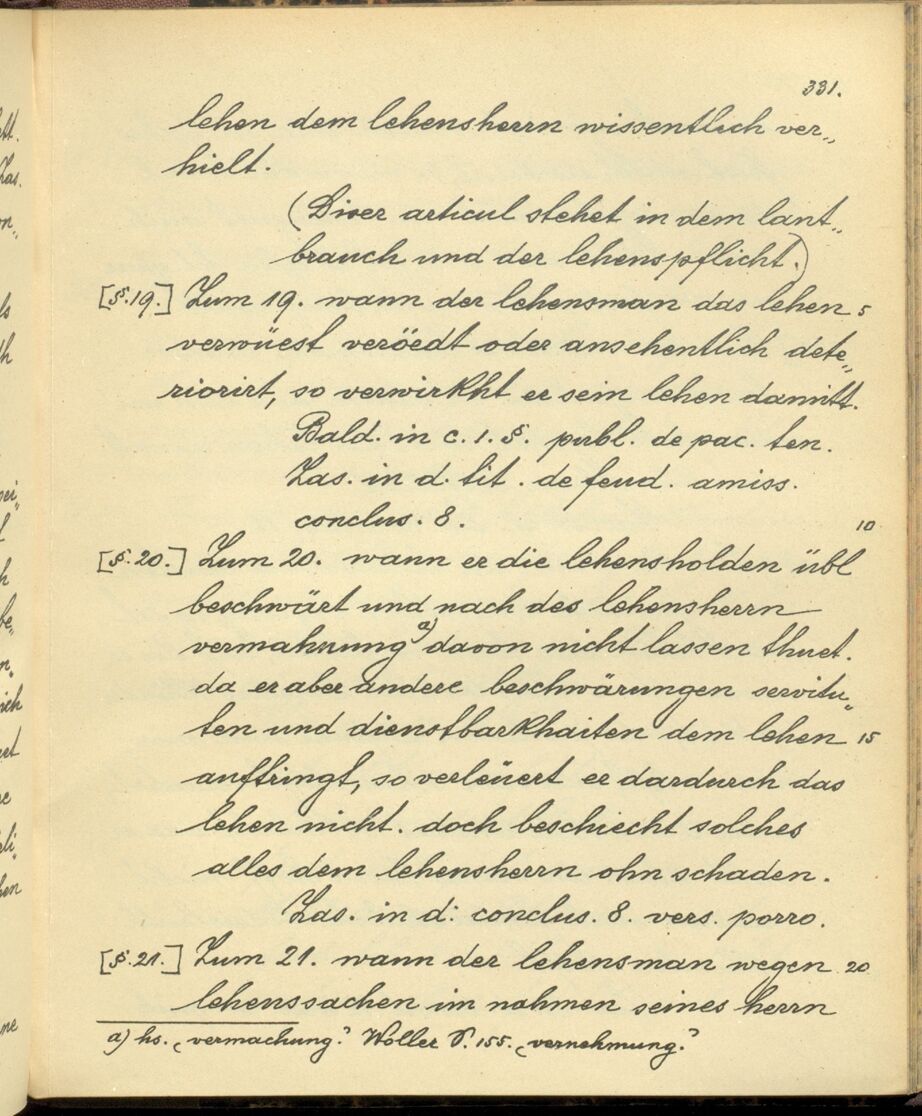 331.
lehen dem lehensherrn wissentlich ver„
hielt.
(Diser articul stehet in dem lant„
brauch und der lehenspflicht.)
[§.19.] Zum 19. wann der lehensman das lehen 5
verwüest veröedt oder ansehentlich dete„
riorirt, so verwirkht er sein lehen damitt.
Bald. in c. 1. §. publ. de pac. ten.
Zas. in d. tit. de feud. amiss.
conclus. 8. 10
[§.20.] Zum 20. wann er die lehensholden übl
beschwärt und nach des lehensherrn
vermahnung a) davon nicht lassen thuet.
da er aber andere beschwärungen servitu„
ten und dienstbarkhaiten dem lehen 15
aufftringt, so verleüert er dardurch das
lehen nicht. doch beschiecht solches
alles dem lehensherrn ohn schaden.
Zas. in d: conclus. 8. vers. porro.
[§.21.] Zum 21. wann der lehensman wegen 20
lehenssachen im nahmen seines herrn
a) hs. „vermachung.“ Woller S. 155. „vernehmung.“